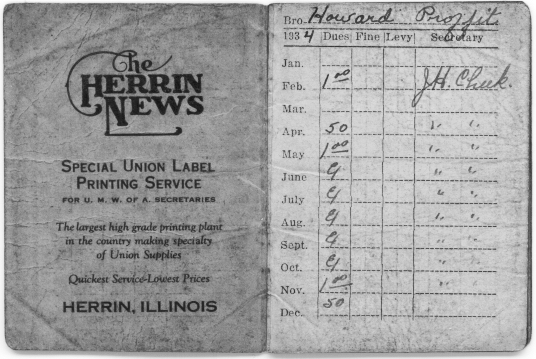 The
HERRIN
NEWS
SPECIAL UNION LABEL
PRINTING SERVICE
FOR U. M. W. OF A. SECRETARIES
The largest high grade printing plant
in the country making specialty
of Union Supplies
Quickest Service-Lowest Prices
HERRIN, ILLINOIS
Bro. Howard Proffit
1934 Dues Fine Levy Secretary
Jan.
Feb. 1 00 J.H. Cheek.
Mar.
Apr. 50 " "
May 1 00 " "
June " "
July " "
Aug. " "
Sept. " "
Oct. " "
Nov. 1 00 " "
Dec. 50